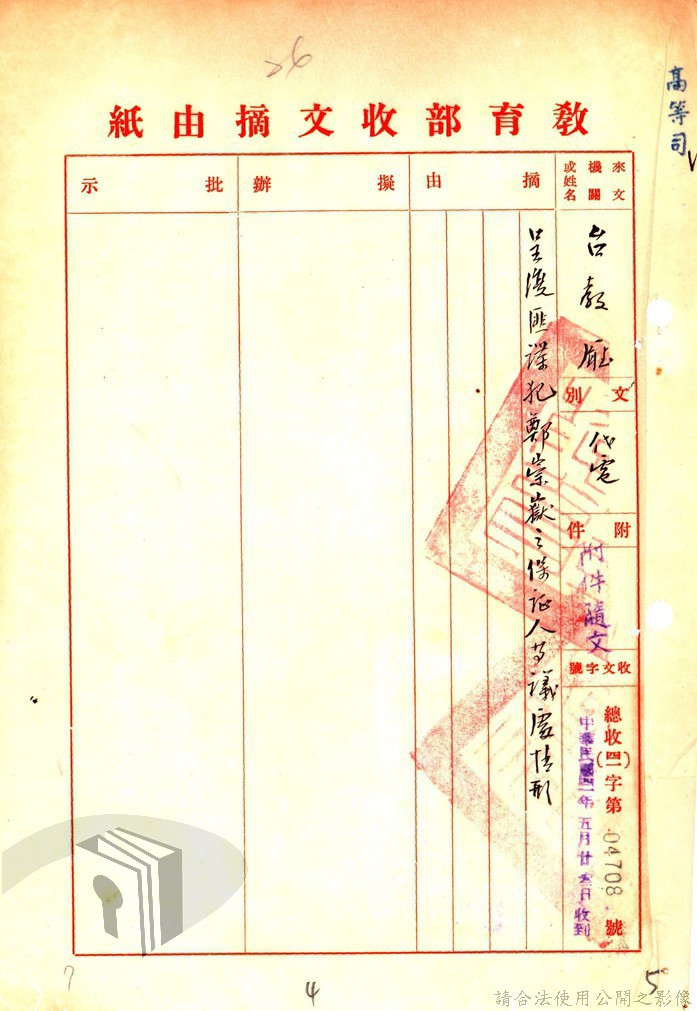 26
高等司
教育部收文摘由紙
來文機關或姓名
台教廳
文別
代電
附件
附件隨文
收文字號
總收(四一)字第04708號
中華民國四一年五月廿三日收到
摘由
呈復匪諜犯鄭崇嶽之保証人等議處情形
擬辦
批示
7
4
5
請合法使用公開之影像